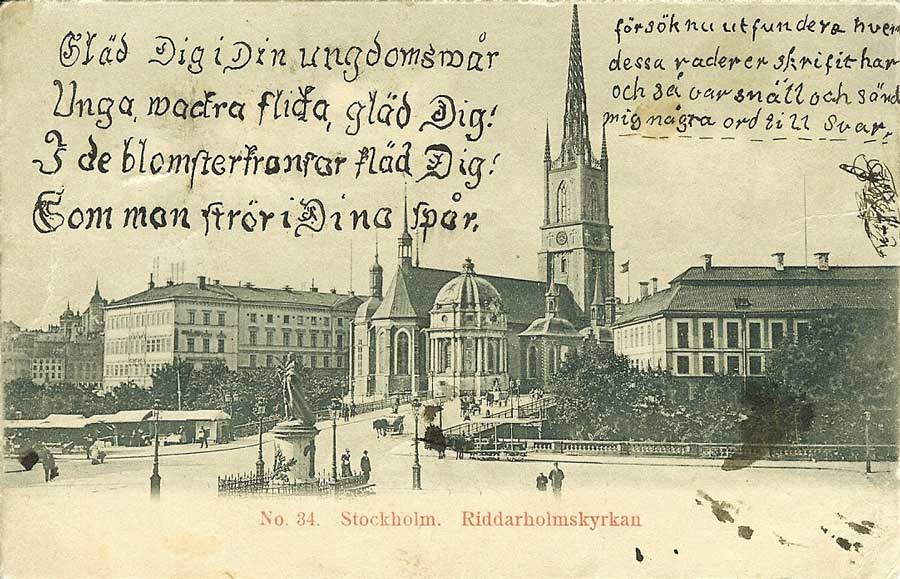 Gläd Dig i Din ungdomswår
Unga, wackra flicka, gläd Dig!
I de blomsterkransar kläd Dig!
Som man strör i Dina spår.
försök nu utfundera hvem
dessa rader er skrifit har
och så var snäll och sänd
mig några ord till Svar.
No. 34. Stockholm. Riddarholmskyrkan